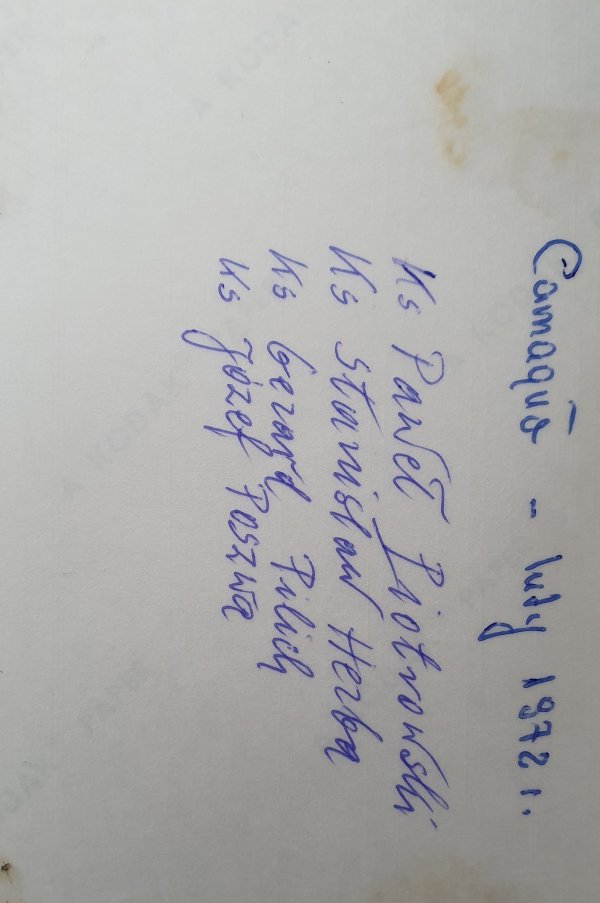 Camaquã - luty 1972 r.
Ks Paweł Piotrowski
Ks Stanisław Herba
Ks Gerard Pilich
Ks Józef Paszwa